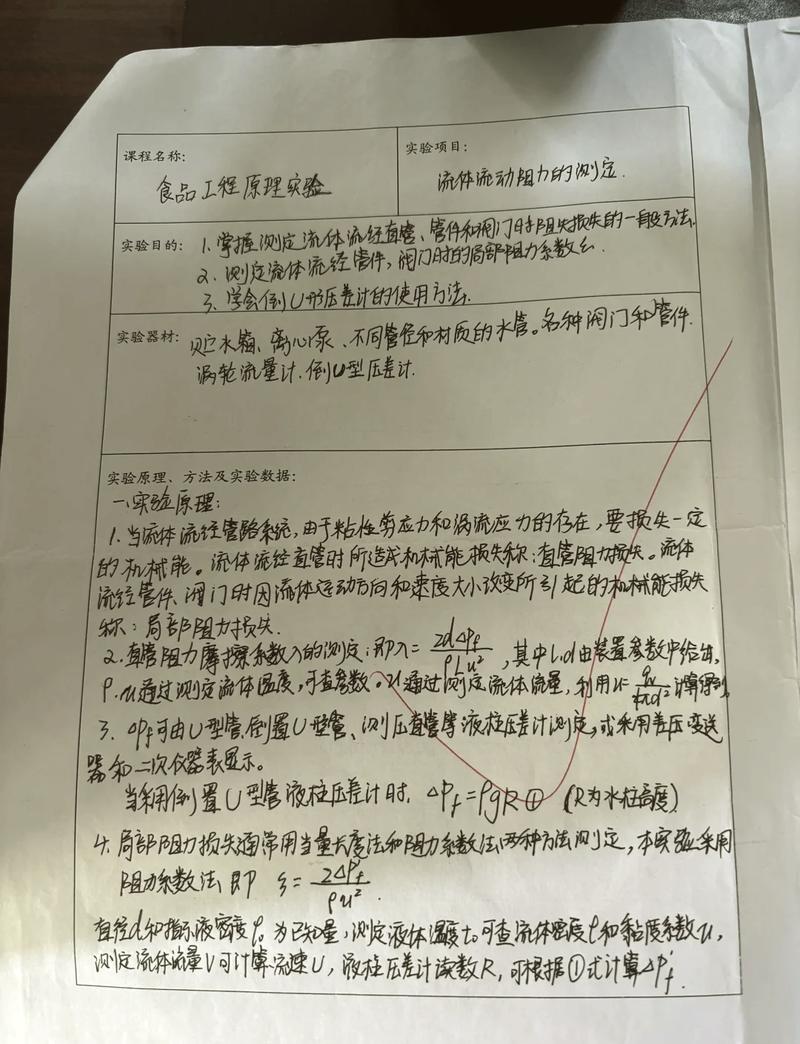 课程名称:
食品工程原理实验
实验项目:
流体流动阻力的测定.
实验目的: 1. 掌握测定流体流经直管、管件和阀门时阻失损失的一般方法.
2. 测定流体流经管件,阀门时的局部阻力系数ξ.
3. 学会倒U形压差计的使用方法.
实验器材: 贮水箱、离心泵、不同管径和材质的水管。各种阀门和管件.
涡轮流量计.倒U型压差计.
实验原理、方法及实验数据:
一.实验原理:
1. 当流体流经管路系统,由于粘性剪应力和涡流应力的存在,要损失一定
的机械能。流体流经直管时所造成机械能损失称:直管阻力损失。流体
流经管件、阀门时因流体运动方向和速度大小改变所引起的机械能损失
称:局部阻力损失.
2. 直管阻力摩擦系数λ的测定:即λ=2dΔPf/ρLu²,其中L.d由装置参数中给出,
ρ.u通过测定流体温度,可查参数。u通过测定流体流量,利用u= 计算得到
3. ΔPf可由U型管.倒置U型管、测压直管等液柱压差计测定,或采用差压变送
器和二次仪器表显示。
当采用倒置U型管液柱压差计时, ΔPf=ρgR ① (R为水柱高度)
4. 局部阻力损失通常用当量长度法和阻力系数法两种方法测定,本实验采用
阻力系数法,即 ξ=2ΔP'f/ρu².
直径d和指示液密度ρ₀为已知量,测定液体温度t₀可查流体密度ρ和黏度系数u,
测定流体流量V可计算流速U,液柱压差计读数R,可根据①式计算ΔP'f.